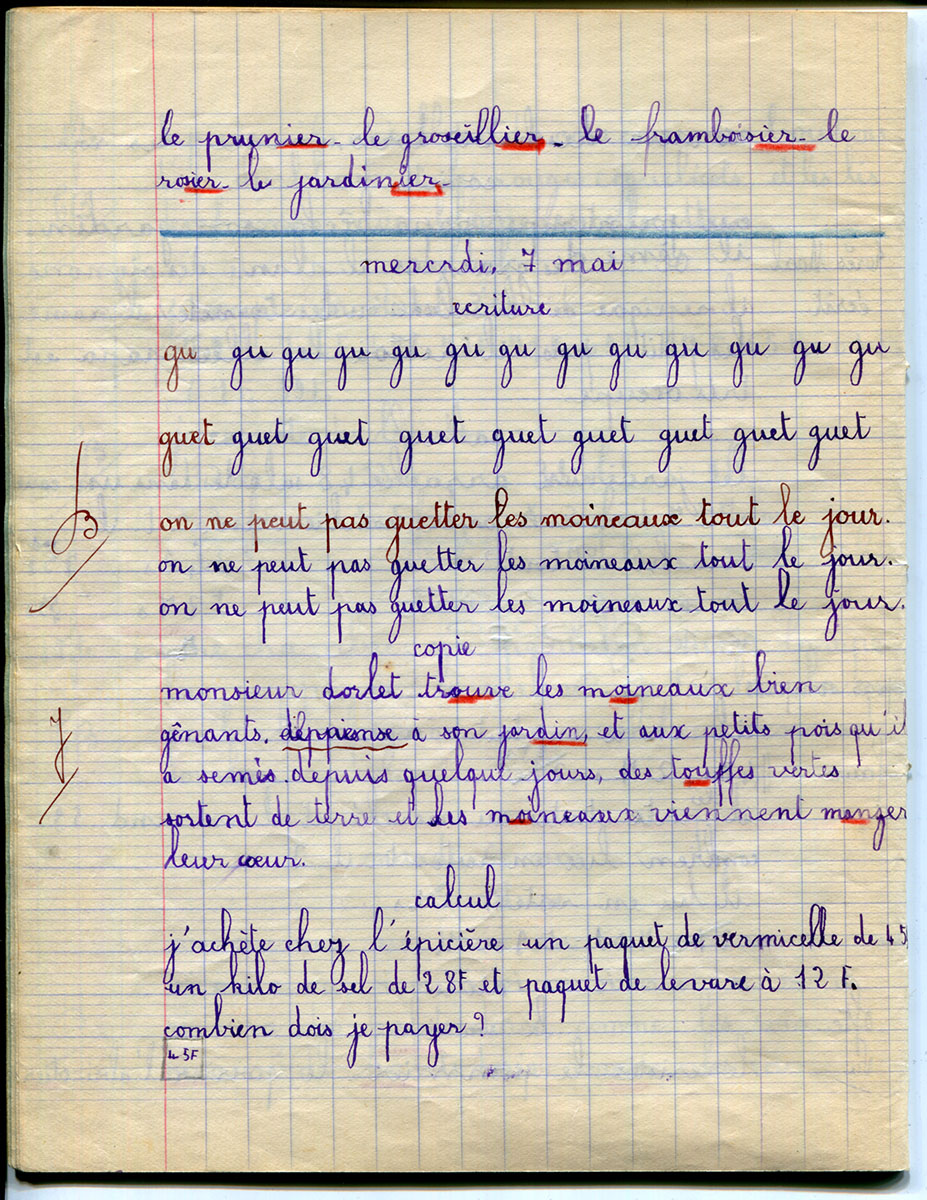 le prunier - le groseillier - le framboisier - le
rosier - le jardinier -
mercrdi, 7 mai
ecriture
gu gu gu gu gu gu gu gu gu gu gu gu gu
guet guet guet guet guet guet guet guet guet
B
on ne peut pas guetter les moineaux tout le jour.
on ne peut pas guetter les moineaux tout le jour.
on ne peut pas guetter les moineaux tout le jour.
copie
monsieur dorlet trouve les moineaux bien
gênants. à son jardin, et aux petits pois qu'il
a semés. depuis quelque jours, des touffes vertes
sortent de terre et les moineaux viennent manger
leur cœur.
calcul
j'achète chez l'épicière un paquet de vermicelle de 45
un kilo de sel de 28F et paquet de levure à 12 F.
combien dois je payer ?
45F